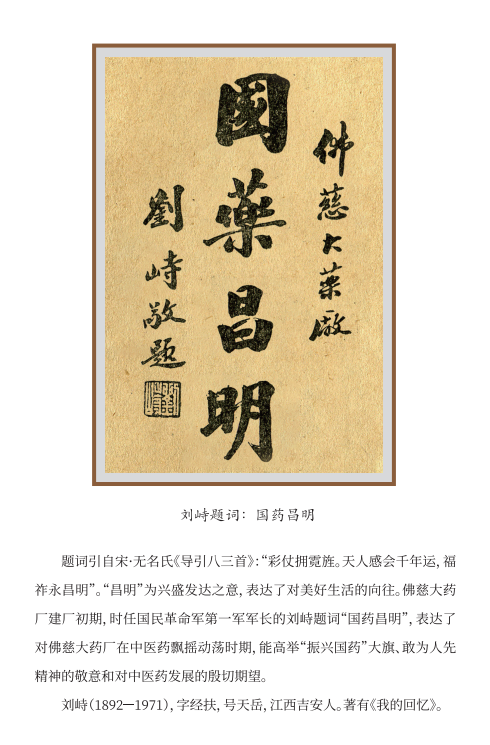 佛慈大藥廠
國藥昌明
劉峙敬題
刘峙题词：国药昌明
题词引自宋·无名氏《导引八三首》：“彩仗拥霓旌。天人感会千年运，福
祚永昌明”。“昌明”为兴盛发达之意，表达了对美好生活的向往。佛慈大药
厂建厂初期，时任国民革命军第一军军长的刘峙题词“国药昌明”，表达了
对佛慈大药厂在中医药飘摇动荡时期，能高举“振兴国药”大旗、敢为人先
精神的敬意和对中医药发展的殷切期望。
刘峙（1892—1971），字经扶，号天岳，江西吉安人。著有《我的回忆》。